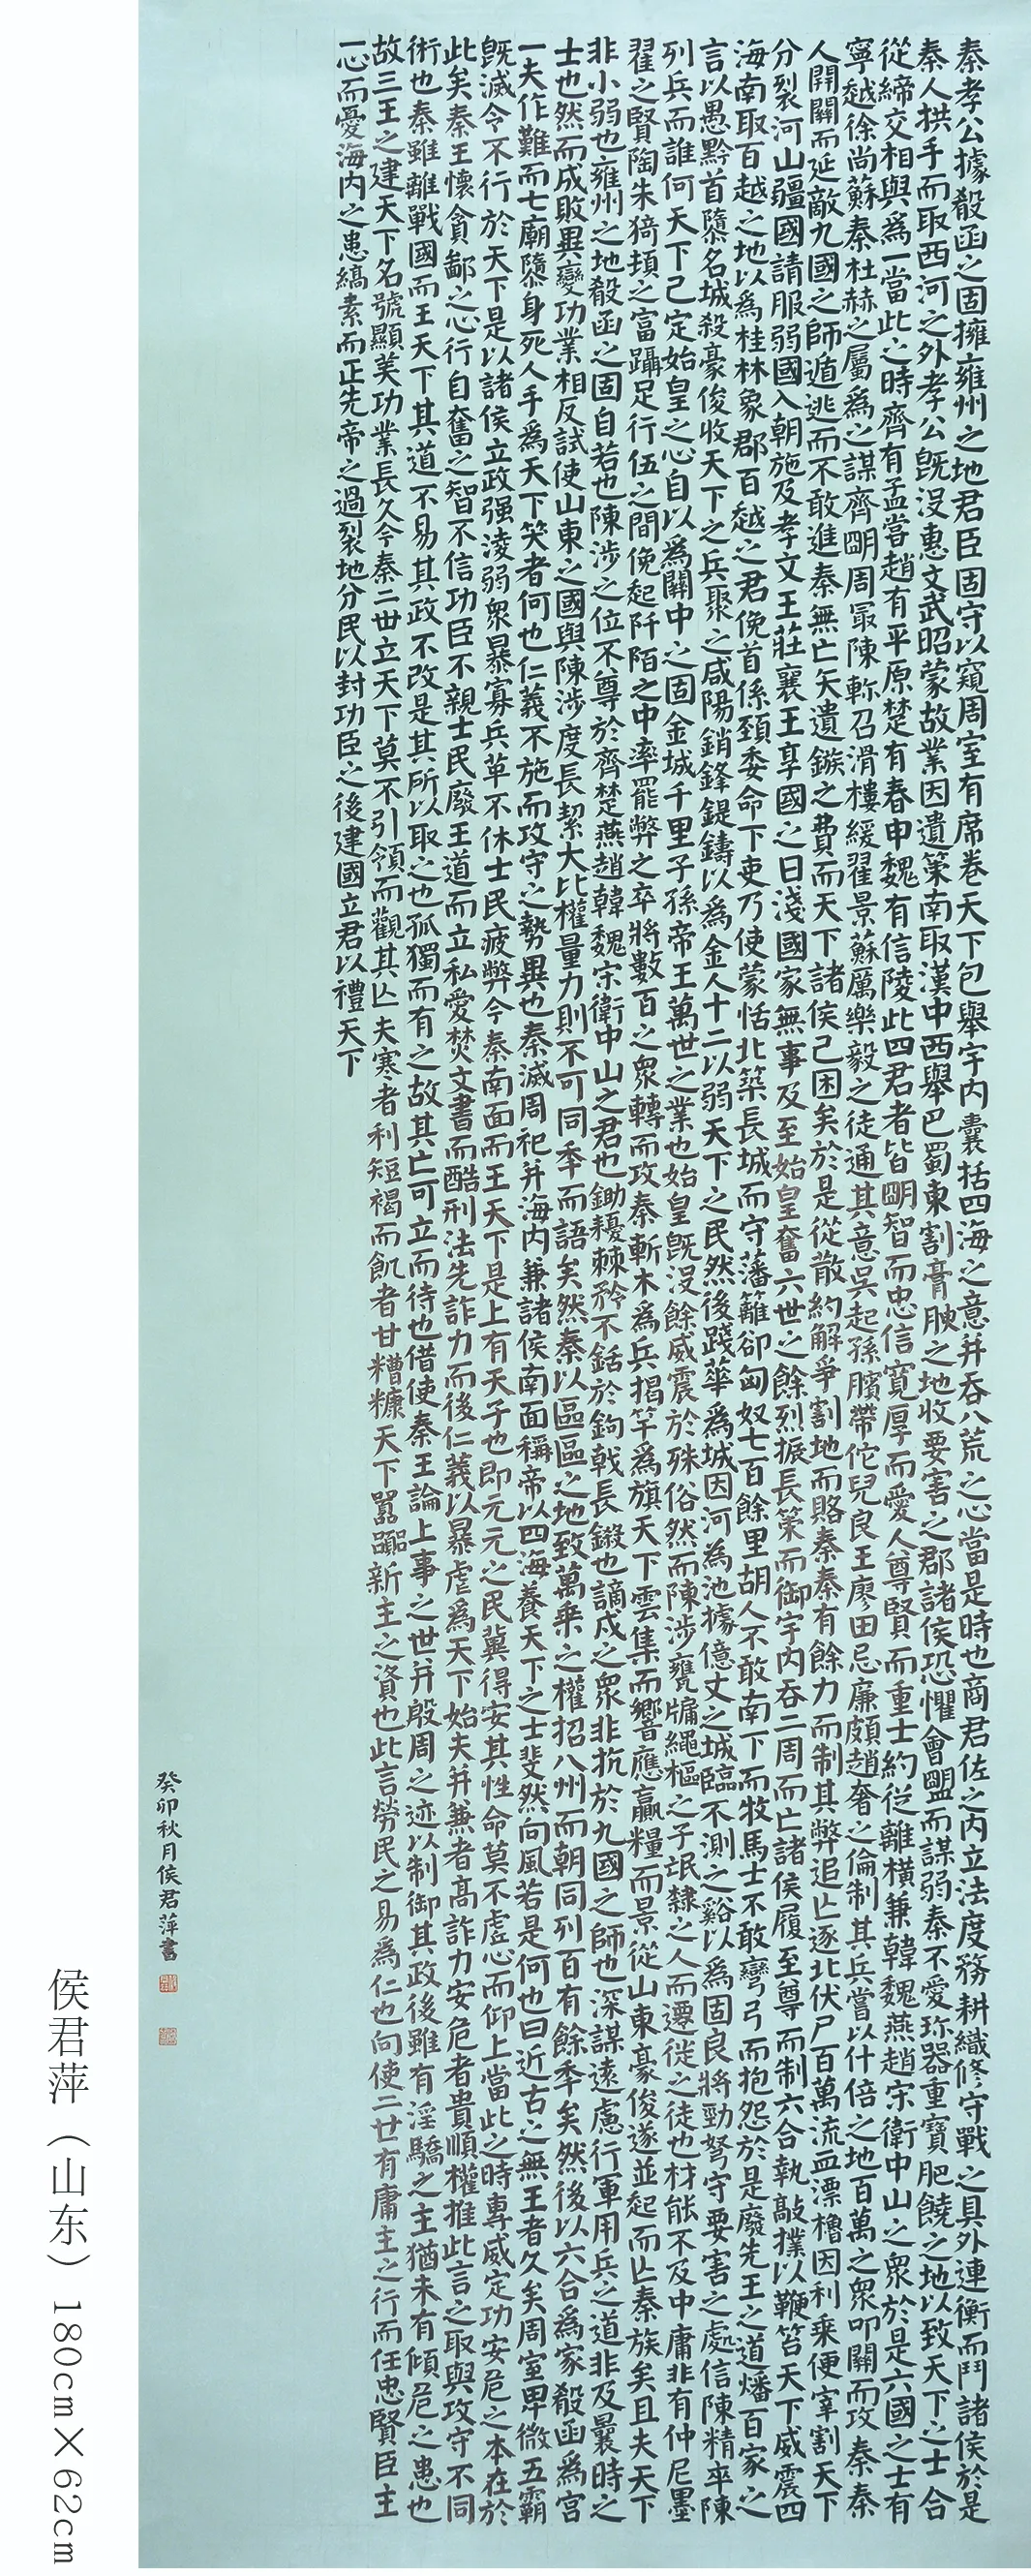 秦孝公據殽函之固擁雍州之地君臣固守以窺周室有席卷天下包舉宇内囊括四海之意并吞八荒之心當是時也商君佐之内立法度務耕織修守戰之具外連衡而鬥諸侯於是
秦人拱手而取西河之外孝公既没惠文武昭蒙故業因遺策南取漢中西舉巴蜀東割膏腴之地收要害之郡諸侯恐懼會盟而謀弱秦不愛珎器重寶肥饒之地以致天下之士合
從締交相與爲一當此之時齊有孟嘗趙有平原楚有春申魏有信陵此四君者皆明智而忠信寬厚而愛人尊賢而重士約從離橫兼韓魏燕趙宋衛中山之衆於是六國之士有
寧越徐尚蘇秦杜赫之屬爲之謀齊明周冣陳軫召滑樓緩翟景蘇厲樂毅之徒通其意吴起孫臏帶佗兒良王廖田忌廉頗趙奢之倫制其兵嘗以什倍之地百萬之衆叩關而攻秦秦
人開關而延敵九國之師遁逃而不敢進秦無亡矢遺鏃之費而天下諸侯已困矣於是從散約解爭割地而賂秦秦有餘力而制其弊追亡逐北伏尸百萬流血漂櫓因利乘便宰割天下
分裂河山彊國請服弱國入朝施及孝文王莊襄王享國之日淺國家無事及至始皇奮六世之餘烈振長策而御宇内吞二周而亡諸侯履至尊而制六合執敲撲以鞭笞天下威震四
海南取百越之地以爲桂林象郡百越之君俛首係頸委命下吏乃使蒙恬北築長城而守藩籬卻匈奴七百餘里胡人不敢南下而牧馬士不敢彎弓而抱怨於是廢先王之道燔百家之
言以愚黔首隳名城殺豪俊收天下之兵聚之咸陽銷鋒鍉鑄以爲金人十二以弱天下之民然後踐華爲城因河為池據億丈之城臨不測之谿以爲固良將勁弩守要害之處信陳精卒陳
列兵而誰何天下已定始皇之心自以爲關中之固金城千里子孫帝王萬世之業也始皇既没餘威震於殊俗然而陳涉甕牖繩樞之子氓隸之人而遷徙之徒也材能不及中庸非有仲尼墨
翟之賢陶朱猗頓之富躡足行伍之間俛起阡陌之中率罷弊之卒將數百之衆轉而攻秦斬木爲兵揭竿爲旗天下雲集而響應贏糧而景從山東豪俊遂並起而亡秦族矣且夫天下
非小弱也雍州之地殽函之固自若也陳涉之位不尊於齊楚燕趙韓魏宋衛中山之君也鋤耰棘矜不銛於鉤戟長鎩也謫戍之衆非抗於九國之師也深謀遠慮行軍用兵之道非及曩時之
士也然而成敗異變功業相反試使山東之國與陳涉度長絜大比權量力則不可同秊而語矣然秦以區區之地致萬乘之權招八州而朝同列百有餘秊矣然後以六合爲家殽函爲宮
一夫作難而七廟隳身死人手爲天下笑者何也仁義不施而攻守之勢異也秦滅周祀并海内兼諸侯南面稱帝以四海養天下之士斐然向風若是何也曰近古之無王者久矣周室卑微五霸
既滅令不行於天下是以諸侯立政强淩弱衆暴寡兵革不休士民疲弊今秦南面而王天下是上有天子也即元元之民冀得安其性命莫不虛心而仰上當此之時專威定功安危之本在於
此矣秦王懷貪鄙之心行自奮之智不信功臣不親士民廢王道而立私愛焚文書而酷刑法先詐力而後仁義以暴虐爲天下始夫并兼者高詐力安危者貴順權推此言之取與攻守不同
術也秦雖離戰國而王天下其道不易其政不改是其所以取之也孤獨而有之故其亡可立而待也借使秦王論上事之世并殷周之迹以制御其政後雖有淫驕之主猶未有傾危之患也
故三王之建天下名號顯美功業長久今秦二世立天下莫不引領而觀其亡夫寒者利短褐而飢者甘糟糠天下嚚嚚新主之資也此言勞民之易爲仁也向使二世有庸主之行而任忠賢臣主
一心而憂海内之患縞素而正先帝之過裂地分民以封功臣之後建國立君以禮天下
癸卯秋月侯君萍書
侯君萍（山东）180cm×62cm